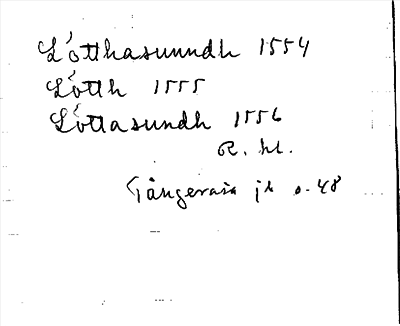 Lótthasunndh 1554
Lótth 1555
Lóttasundh 1556
R. hl.
Tångeråsa jb s. 48